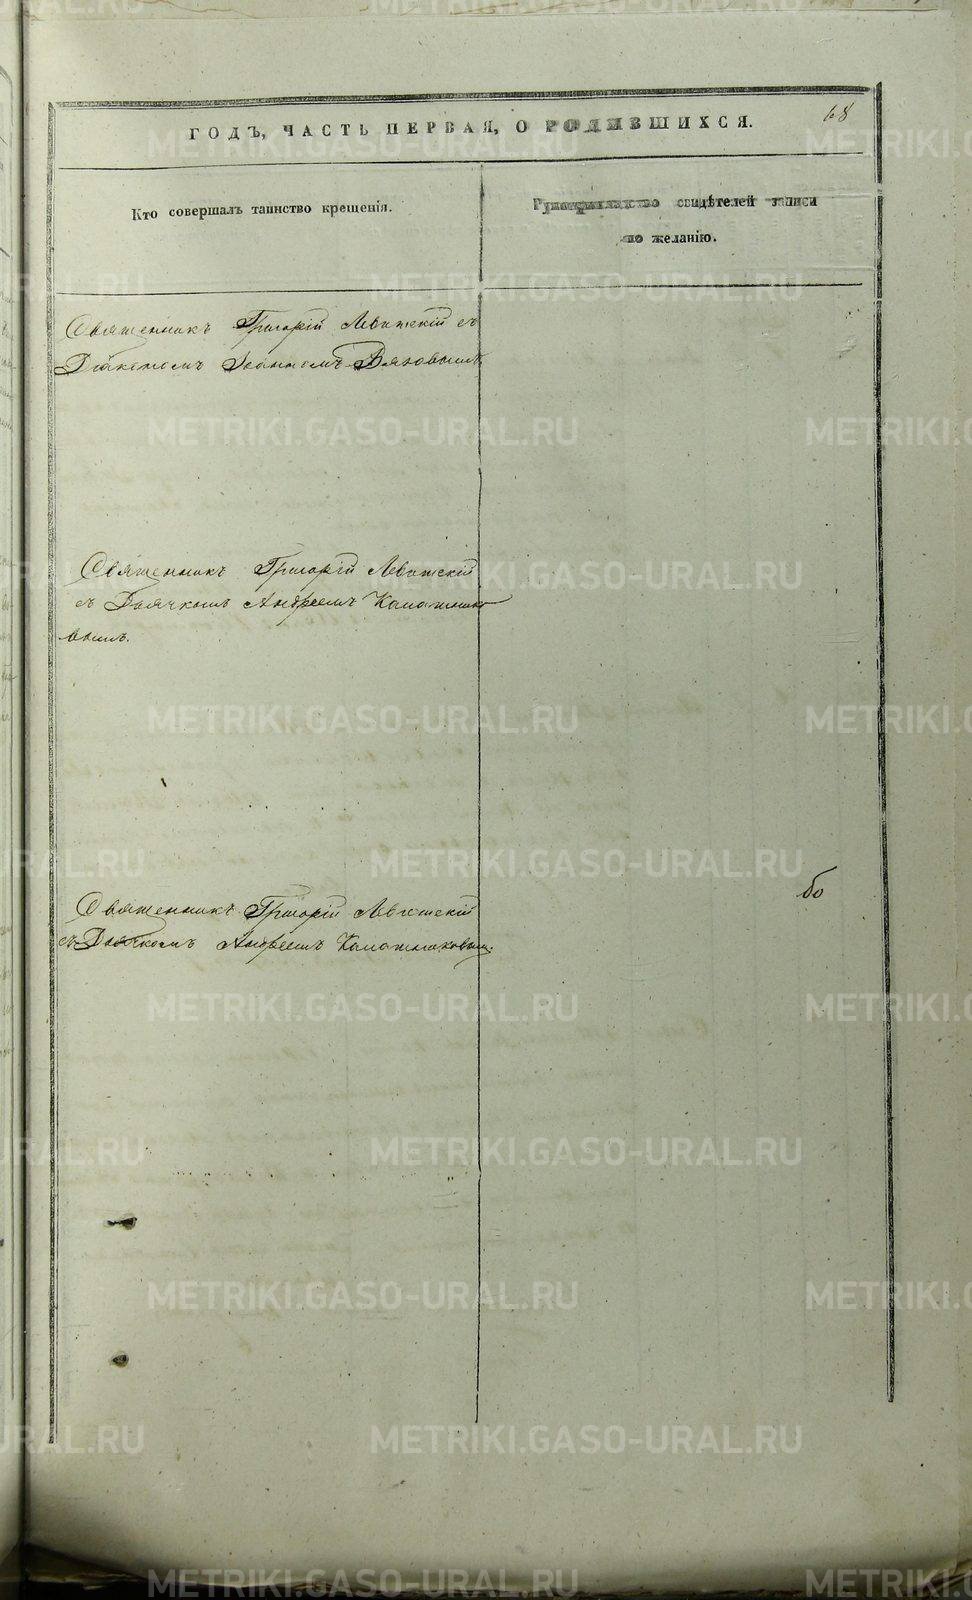 68
ГОДЪ, ЧАСТЬ ПЕРВАЯ, О РОДИВШИХСЯ.
Кто совершалъ таинство крещенія.
Рукоприкладство свидѣтелей записи
по желанію.
Священникъ Григорій Левитскій съ
Діакономъ Іоанномъ Вяховымъ
Священникъ Григорій Левитскій
съ Дьячкомъ Андреемъ Калашнико
вымъ.
60
Священникъ Григорій Левитскій
съ Дьячкомъ Андреемъ Калашниковым.
METRIKI.GASO-URAL.RU